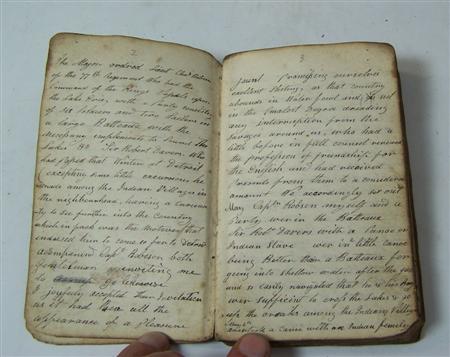 2
The Major ordered Lieut Chas Robson
of the 77th Regiment who had the
Command of the Kings Vessels upon
the Lake Erie, with a Party consisting
of six Seamen and two Soldiers in
a large Batteaux with the
necessary implements to Sound the
Lakes &c Sir Robert Davers who
had passed that Winter at Detroit
(excepting some little excursions he
made among the Indian Villages in
the neighbourhood, having a curiosi
ty to see further into the Country
which in fact was the Motive that
induced him to come so far to Detroit
accompanied Capt Robson both
Gentlemen inviting me
to go likewise
I joyfully accepted their invitation
as it had all the
appearance of a Pleasure
3
Jaunt Promising ourselves
excellent Shooting, as that country
abounds in Water fowl and not
in the smallest Degree dreading
any interruption from the
Savages around us, who had a
little before in full council renewed
the profession of friendship for
the English and had received
Presents from them to a considerable
amount We accordingly set out
May Captn Robson myself and a
Party were in the Batteaux
Sir Robt Davers with a Canoe
Indian Slave were in little canoe
being Better than a Batteaux for
going into shallow water after the
and is easily navigated that
were sufficient to cross the Lakes
the among the Indian
a Canoe with one Indian